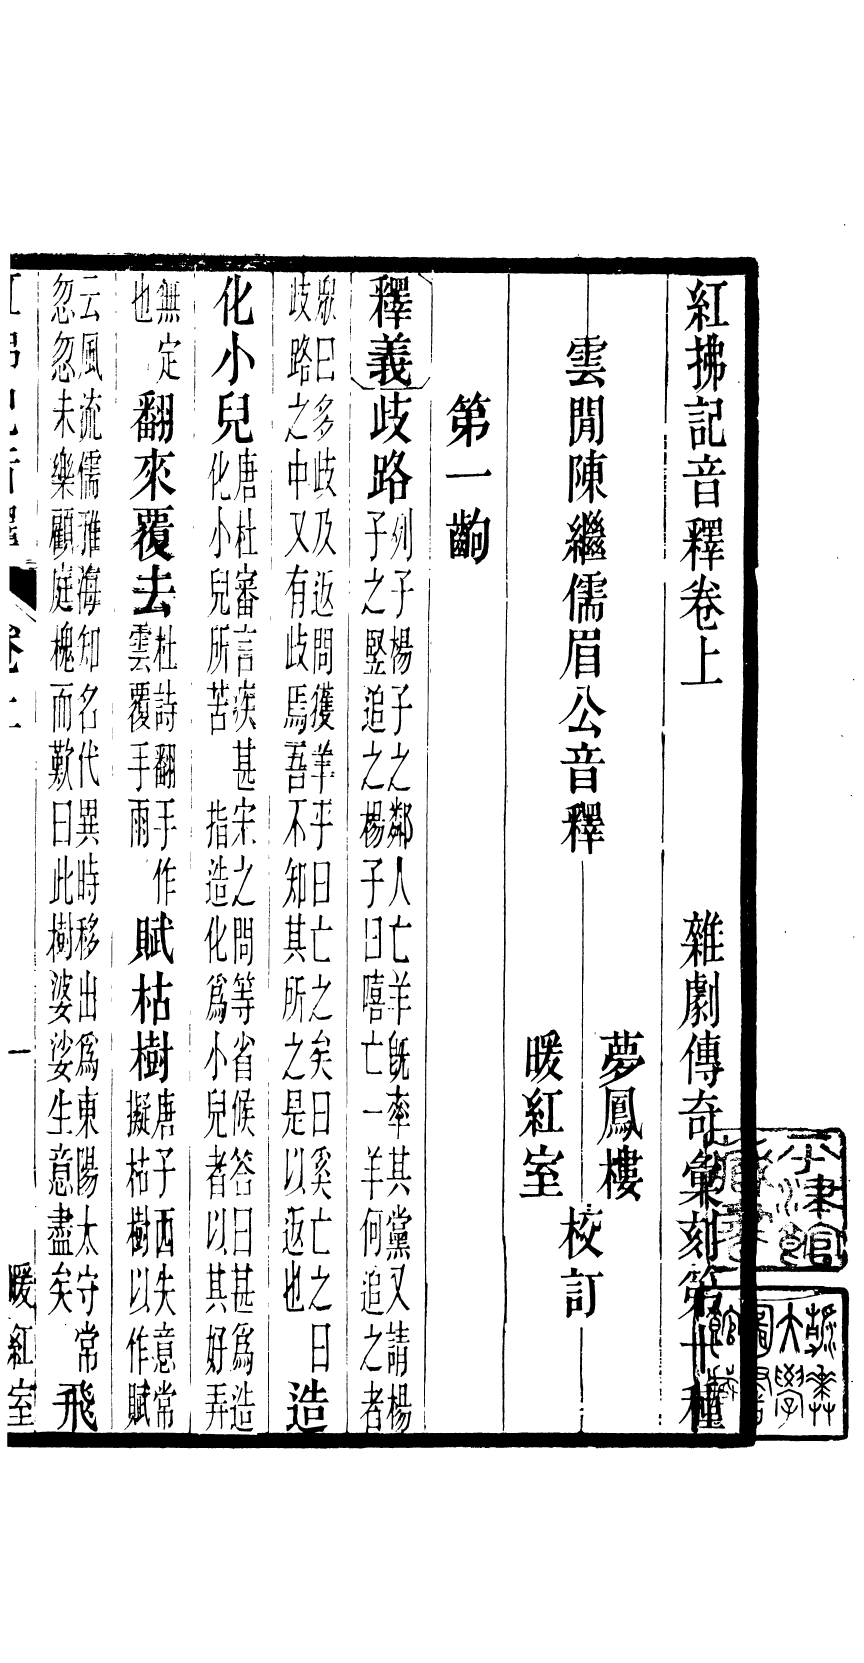 紅拂記音釋卷上　　雜劇傳奇彙刻第十種
雲閒陳繼儒眉公音釋
夢鳳樓
暖紅室
校訂
第一齣
釋義歧路列子楊子之鄰人亡羊旣率其黨又請楊
子之竪追之楊子曰嘻亡一羊何追之者
衆曰多歧及返問獲羊乎曰亡之矣曰奚亡之曰
歧路之中又有歧焉吾不知其所之是以返也造
化小兒唐杜審言疾甚宋之問等省候答曰甚爲造
化小兒所苦　指造化爲小兒者以其好弄
無定
也翻來覆去杜詩翻手作
雲覆手雨賦枯樹唐子西失意常
擬枯樹以作賦
云風流儒雅海知名代異時移出爲東陽太守常
忽忽未樂顧庭槐而歎曰此樹婆娑生意盡矣飛
紅拂記音釋　卷上　一　暖紅室